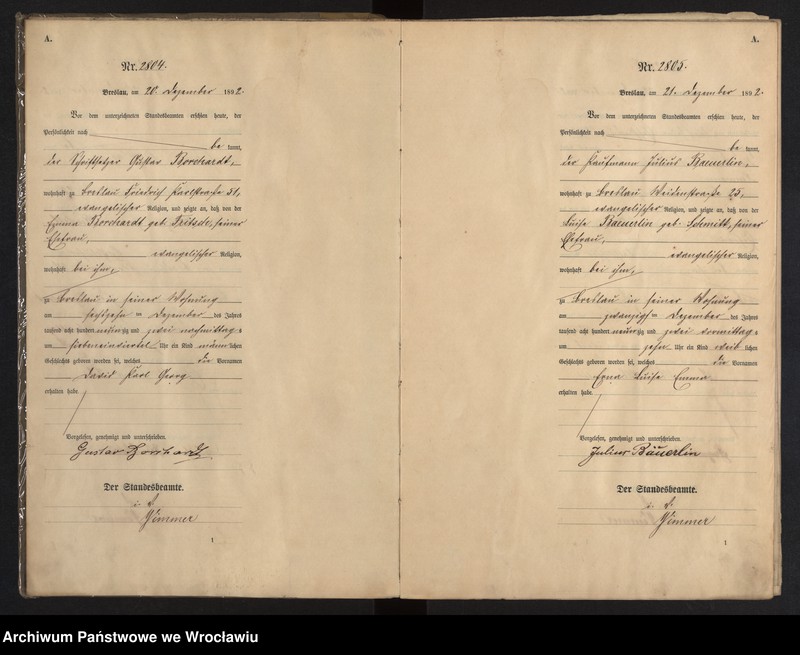 A.
Nr. 2804.
Breslau, am 20. Dezember 1892.
Vor dem unterzeichneten Standesbeamten erschien heute, der
Persönlichkeit nach
be kannt,
der Schriftsetzer Gustav Borchardt,
wohnhaft zu Breslau Friedrich Karlstraße 31,
evangelischer Religion, und zeigte an, daß von der
Emma Borchardt geb. seiner
Ehefrau,
evangelischer Religion,
wohnhaft bei ihm,
zu Breslau in seiner Wohnung
am sechszehn ten Dezember des Jahres
tausend acht hundert neunzig und zwei nachmittags
um Uhr ein Kind männ lichen
Geschlechts geboren worden sei, welches die Vornamen
David Karl Georg
erhalten habe.
Vorgelesen, genehmigt und unterschrieben.
Gustav Borchardt
Der Standesbeamte.
i. V.
Zimmer
1
A.
Nr. 2805.
Breslau, am 21. Dezember 1892.
Vor dem unterzeichneten Standesbeamten erschien heute, der
Persönlichkeit nach
be kannt,
der Kaufmann Julius Baeuerlin,
wohnhaft zu Breslau Weidenstraße 25,
evangelischer Religion, und zeigte an, daß von der
Luise Baeuerlin geb. Schmitt, seiner
Ehefrau,
evangelischer Religion,
wohnhaft bei ihm,
zu Breslau in seiner Wohnung
am zwanzigsten Dezember des Jahres
tausend acht hundert neunzig und zwei vormittags
um zehn Uhr ein Kind weib lichen
Geschlechts geboren worden sei, welches die Vornamen
Luise Emma
erhalten habe.
Vorgelesen, genehmigt und unterschrieben.
Julius Bäuerlin
Der Standesbeamte.
i. V.
Zimmer
1
Archiwum Państwowe we Wrocławiu